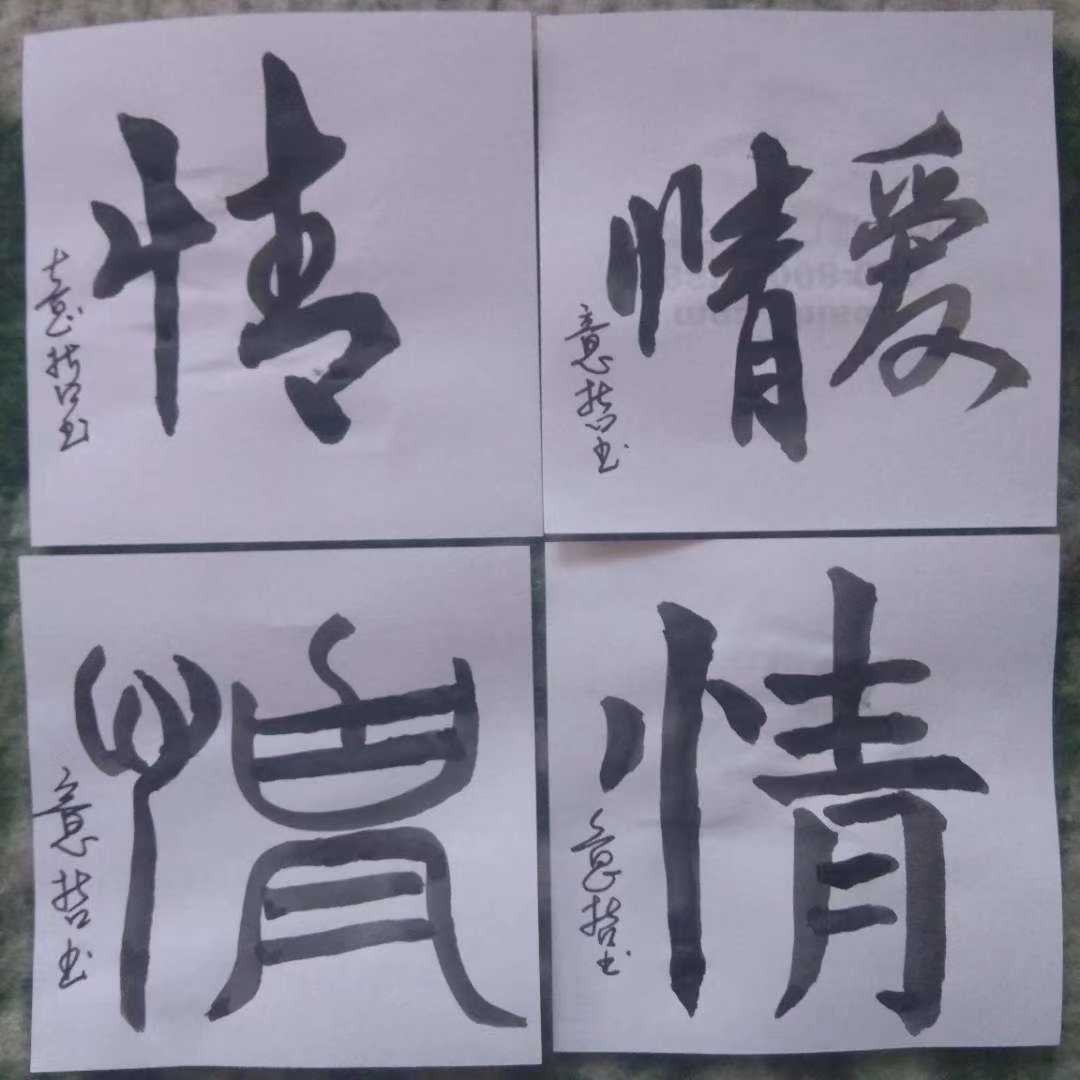 情
意哲书
爱
情
意哲书
情
意哲书
情
意哲书